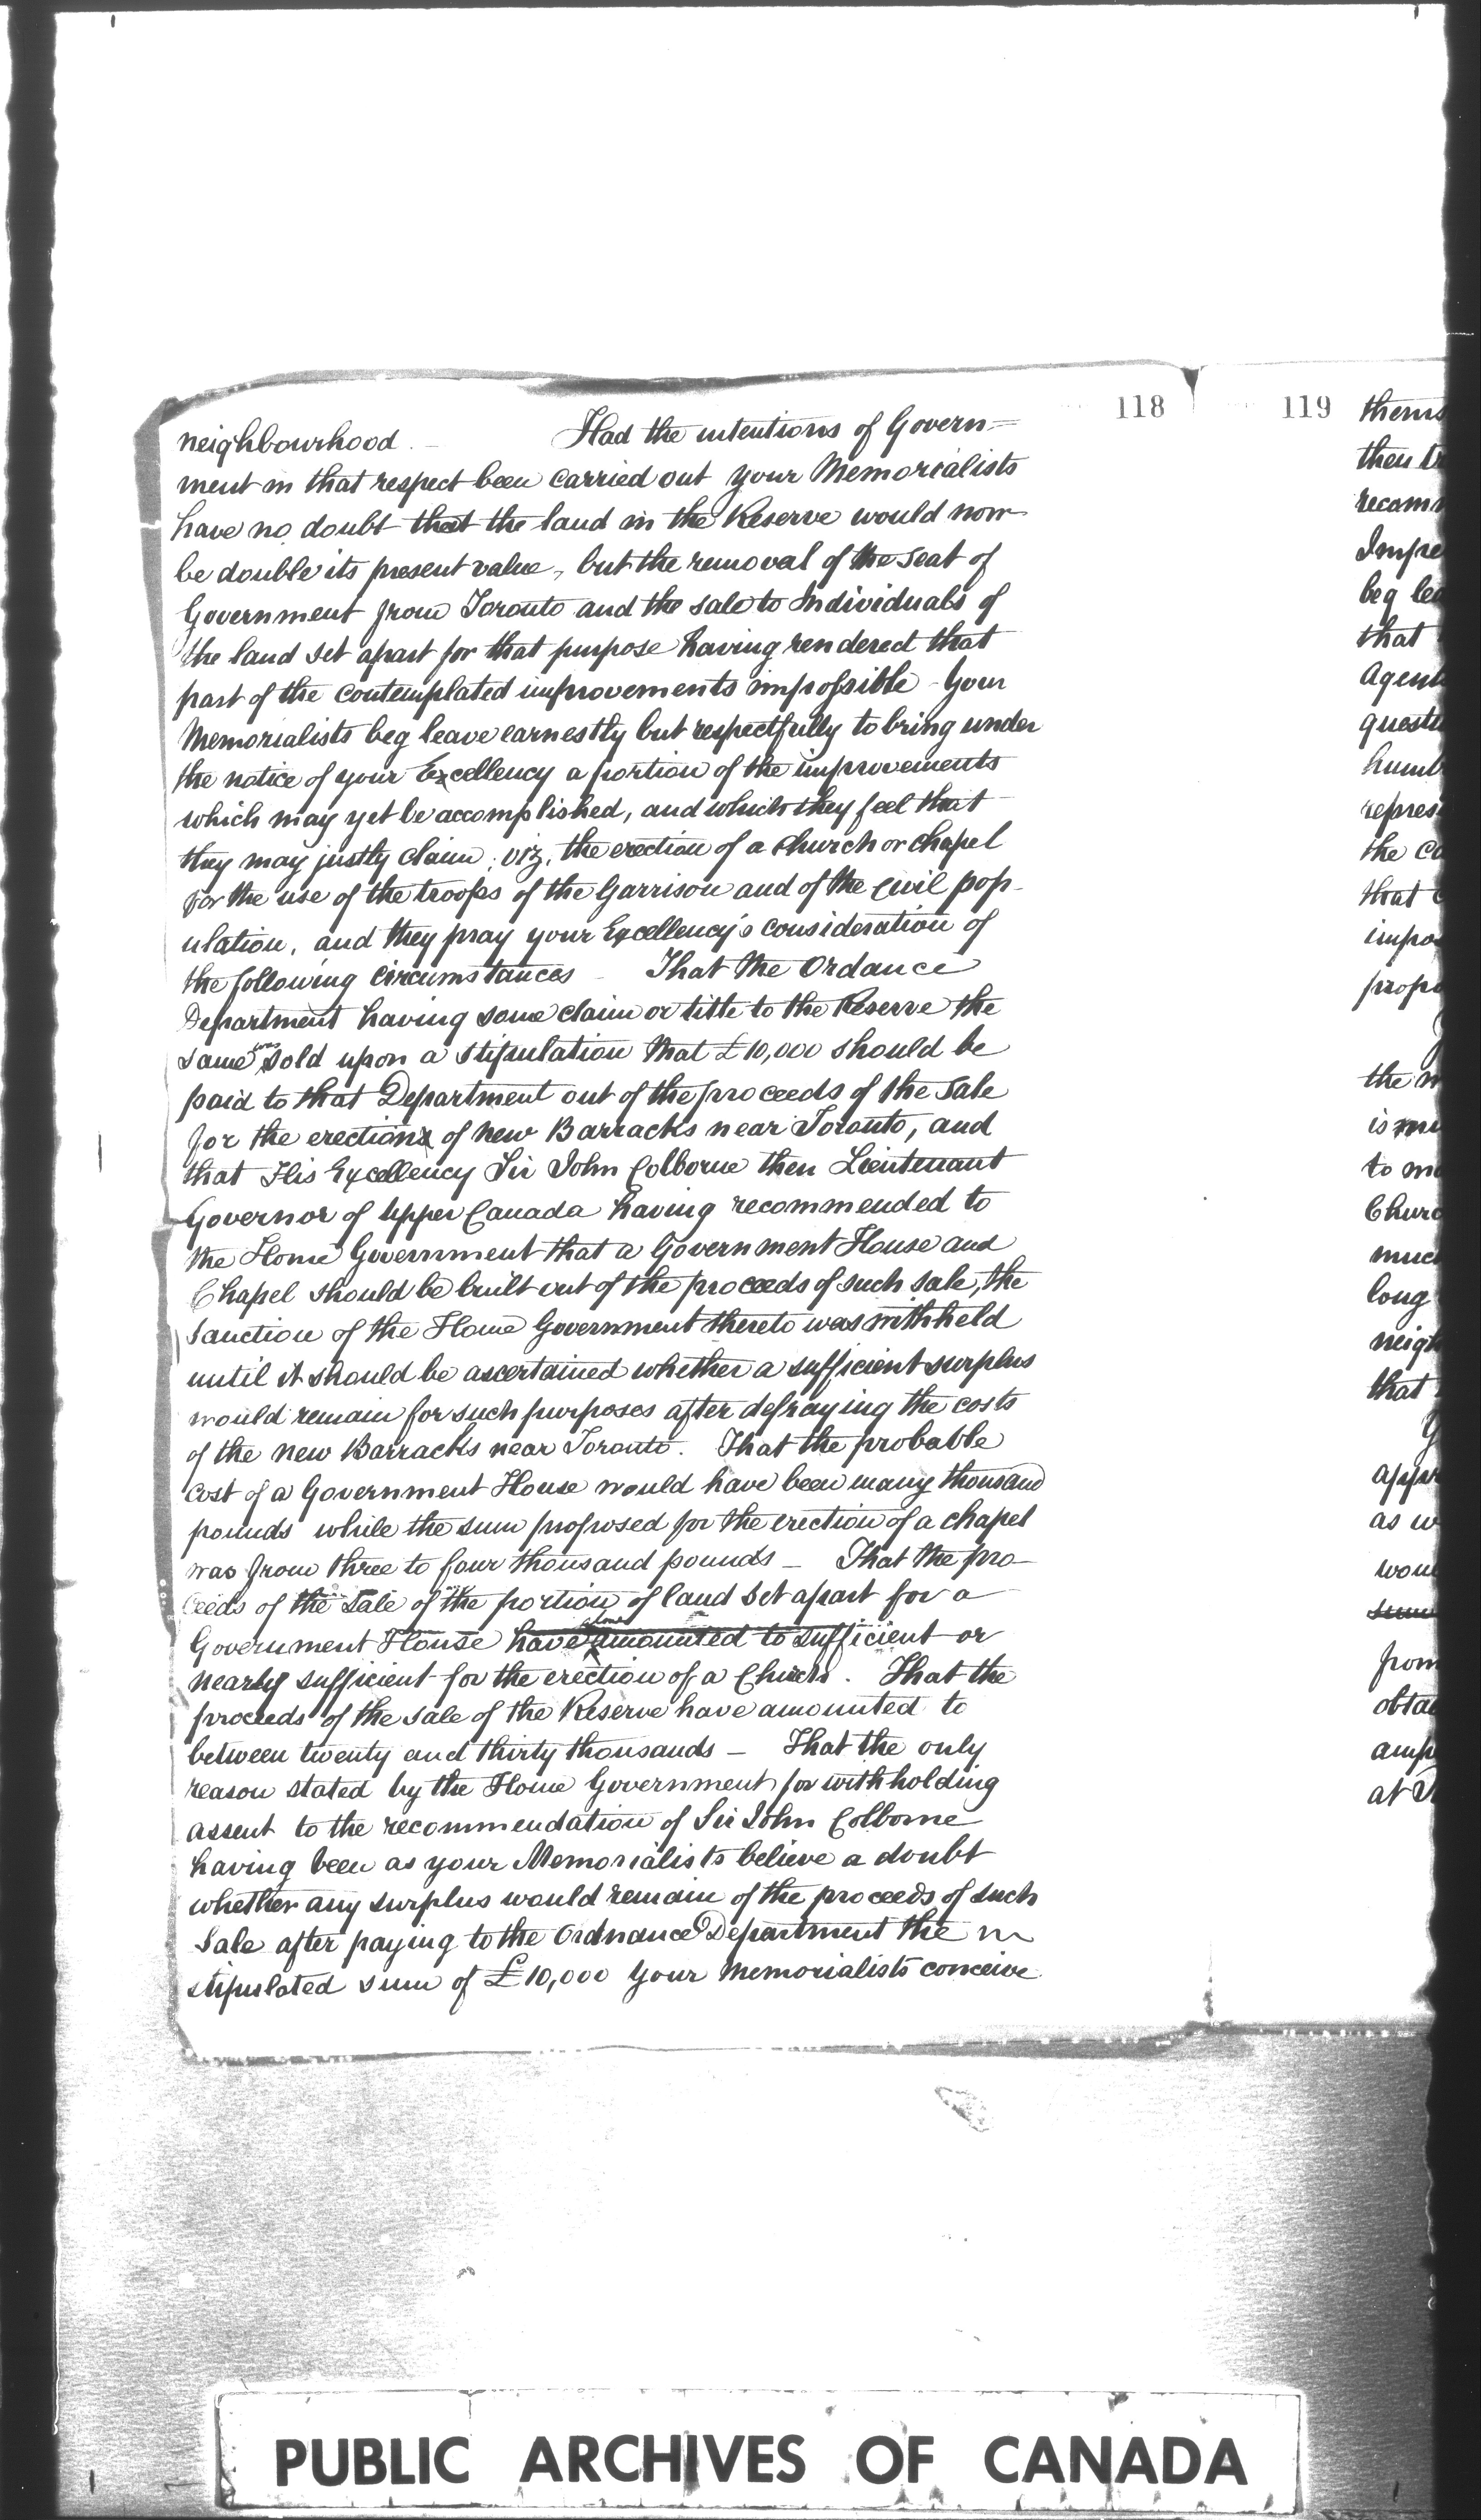 118
neighbourhood. — Had the intentions of Govern=
ment in that respect been carried out your Memorialists
have no doubt that the land in the Reserve would now
be double its present value, but the removal of the seat of
Government from Toronto and the sale to Individuals of
the land set apart for that purpose having rendered that
part of the contemplated improvements impossible - Your
Memorialists beg leave earnestly but respectfully to bring under
the notice of your Excellency a portion of the improvements
which may yet be accomplished, and which they feel that
they may justly claim; viz, the erection of a Church or chapel
for the use of the troops of the Garrison and of the civil pop-
ulation, and they pray your Excellency's consideration of
the following circumstances — That the Ordance
Department having some claim or title to the Reserve the
same was sold upon a stipulation that £10,000 should be
paid to that Department out of the proceeds of the Sale
for the erection of new Barracks near Toronto, and
that His Excellency Sir John Colborne then Lieutenant
Governor of Upper Canada having recommended to
the Home Government that a Government House and
Chapel should be built out of the proceeds of such sale, the
Sanction of the Home Government thereto was withheld
until it should be ascertained whether a sufficient surplus
would remain for such purposes after defraying the costs
of the new Barracks near Toronto. That the probable
cost of a Government House would have been many thousand
pounds while the sum proposed for the erection of a chapel
was from three to four thousand pounds — That the pro-
ceeds of the Sale of the portion of land set apart for a
Government House have alone amounted to sufficient or
nearly sufficient for the erection of a Church. That the
proceeds of the sale of the Reserve have amounted to
between twenty and thirty thousands — That the only
reason stated by the Home Government for withholding
assent to the recommendation of Sir John Colborne
having been as your Memorialists believe a doubt
whether any surplus would remain of the proceeds of such
Sale after paying to the Ordnance Department the
stipulated sum of £10,000 Your Memorialists conceive
119
thems
then
recom
Impe
beg lea
that
Agent
questi
humb
repres
the ca
that
impos
propo
the m
is
to mo
Churc
much
long
neigh
that
appr
as w
woul
from
obtai
amp
at
PUBLIC ARCHIVES OF CANADA